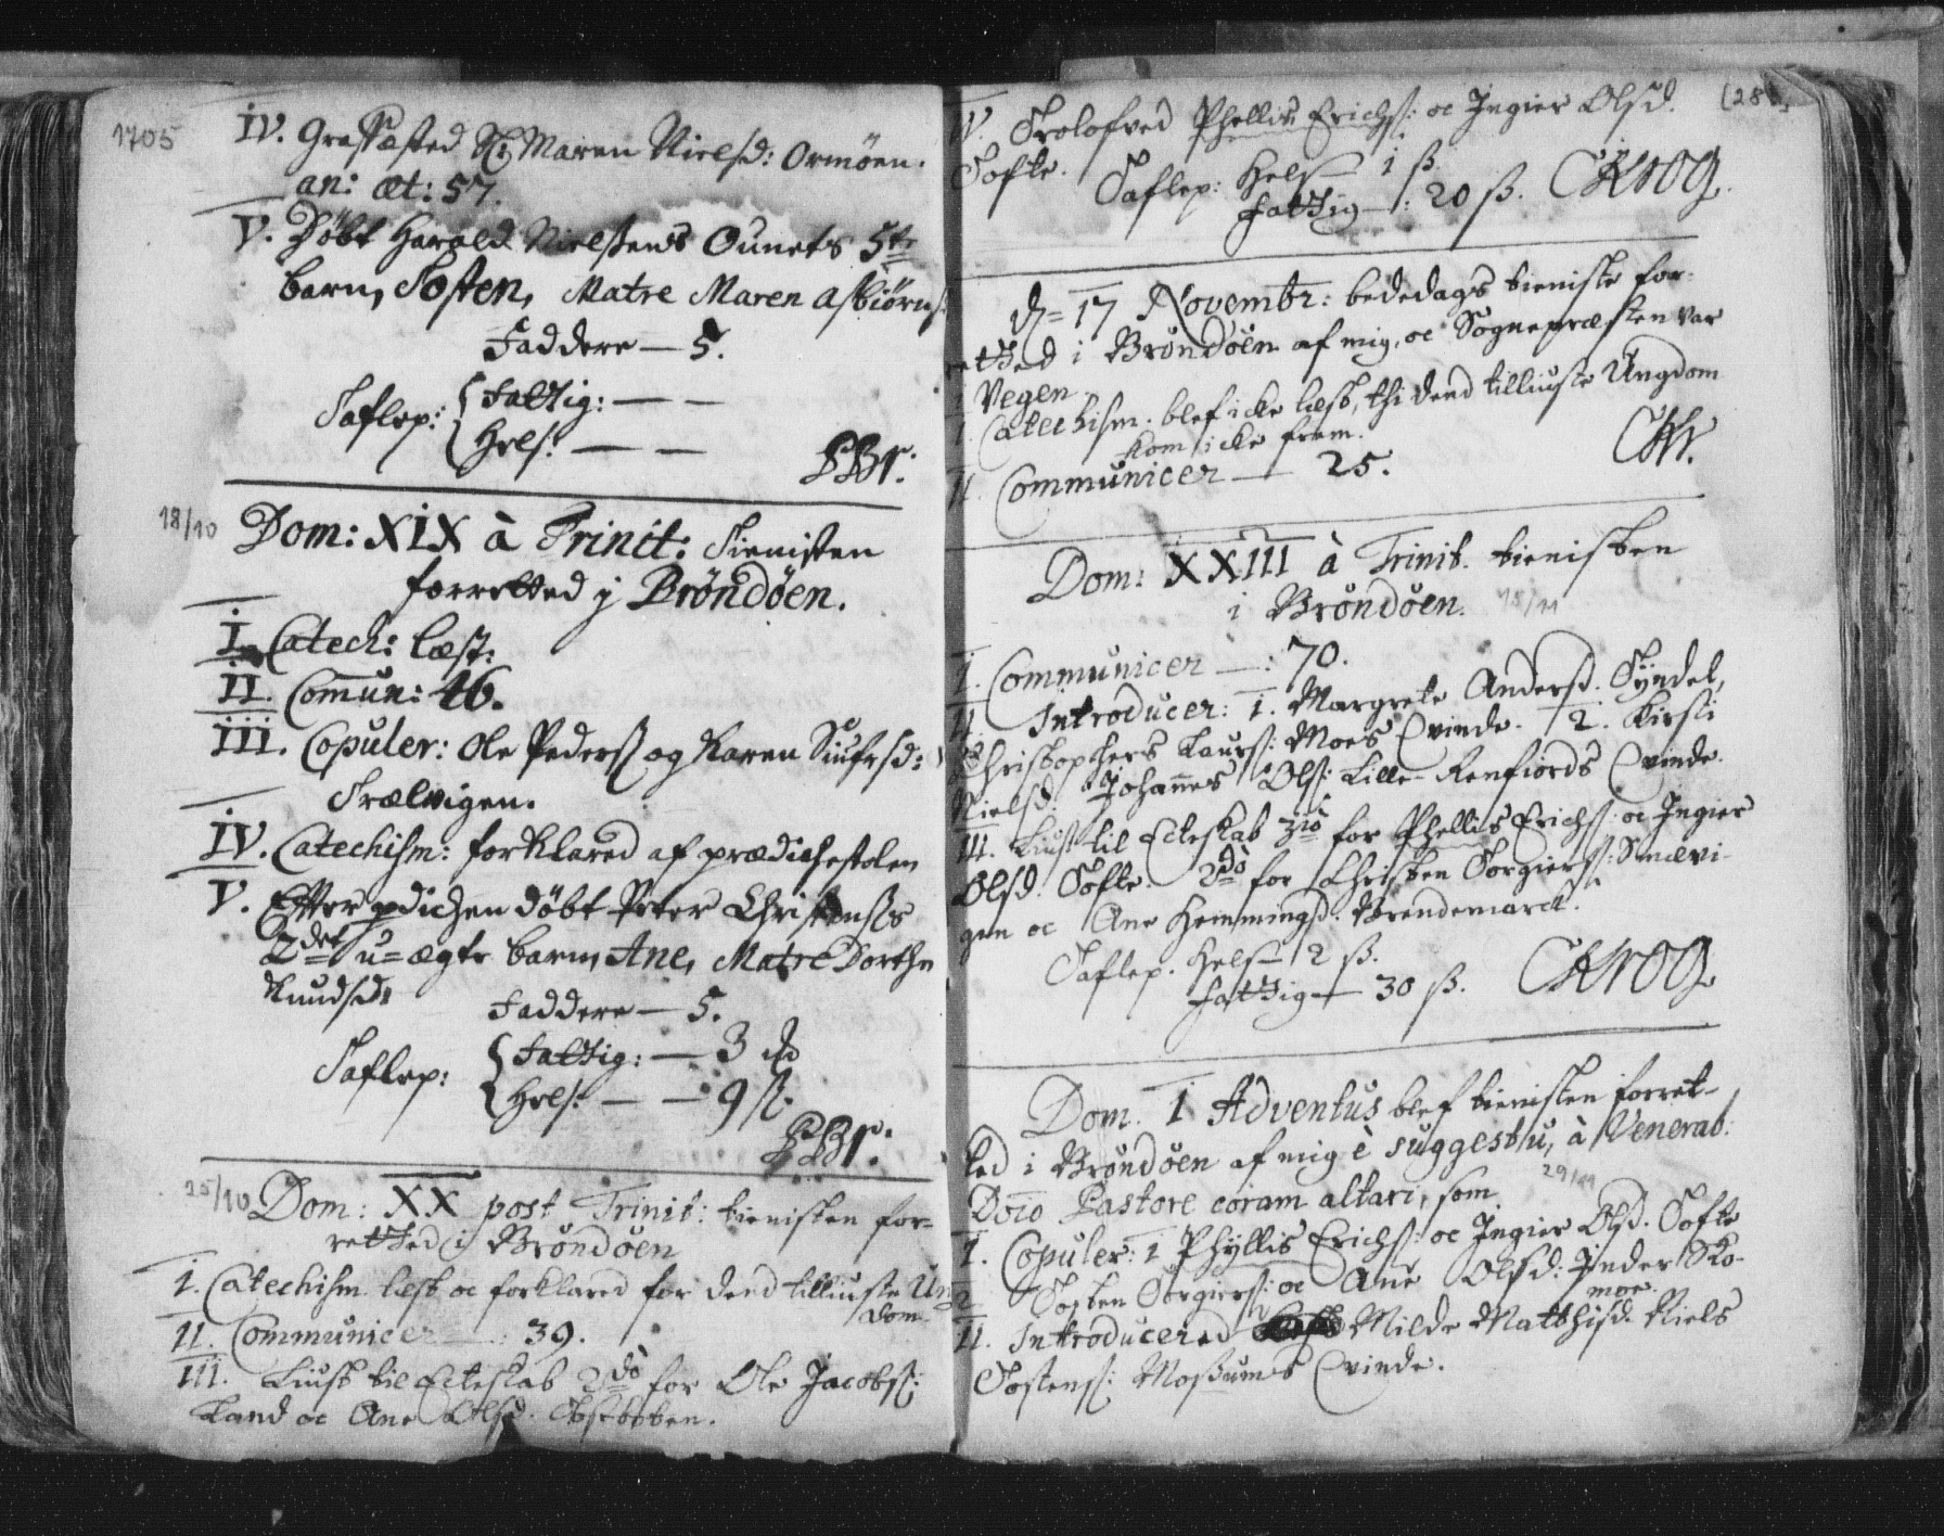 1705
IV. Graffæsted Sl: Maren Nielsd: Ormøen.
an: æt: 57.
V. Døbt Harald Nielsens Ounets 5te
barn, Tosten, Matre Maren Asbiørns
Faddere — 5.
Taflep: Fattig: — —
Hels: — —
18/10
Dom: XIX à Trinit: Tienisten
forretted j Brøndøen.
I. Catech: læst.
II. Com̄un: 46.
III. Copuler: Ole Pederss og Karen Siufrsd:
Trælvigen.
IV. Catechism: forklared af prædichestolen
V. Efter pdichen døbt Peter Christenss
2det u=ægte barn, Ane, Matre Dorthe
Knudsd:
Faddere — 5.
Taflep: Fattig: — 3
Hels: — — 9 ß.
25/10
Dom: XX post Trinit: tienisten for=
retted i Brøndøen
I. Catechism læst oc forklared for dend tilliuste Ung
dom
II. Communicer — : 39.
III. Liust til Ecteskab 2do for Ole Jacobss:
Land oc Ane Olsd.
(28)
IV. Trolofved Phellis Erichs: oc Ingier Olsd.
Tofte. Taflep: Hels — 1 ß.
Fattig — : 20 ß. CKrog.
d= 17 Novembr: bededags tieniste for=
retted i Brøndøen af mig, oc Sognepræsten var
i Vegen
I. Catechism. blef icke læst, thi dend tilliuste Ungdom
kom icke frem.
II. Communicer — 25. CKr.
Dom: XXIII à Trinit. tienisten
i Brøndøen. 15/11
I. Communicer — : 70.
II. Introducer: 1. Margrete Andersd. Tyndel,
Christophers Laurs: Moes Qvinde. 2. Kirsti
Nielsd. Johan̄es Ols: Lille-Renfiords Qvinde.
III. Liust til Ecteskab 3tio for Phellis Erichs: oc Ingier
Olsd. Tofte. 2do for Christen Torgierss: Smævi-
gen oc Ane Hemmingsd. Torendemarck.
Taflep. Hels — 12 ß.
Fattig — 30 ß. CKrog
Dom. 1 Adventus blef tienisten forret-
ted i Brøndøen af mig è suggestu, à Venerab.
29/11
Dn̄o Pastore coram altari, som
I. Copuler: 1 Phyllis Erichs: oc Ingier Olsd. Tofte
2 Tosten Torgierss: oc Ane Olsd: Inder Sko-
moe.
II. Introducered Milde Matthisd. Niels
Tostens: Mossums Qvinde.